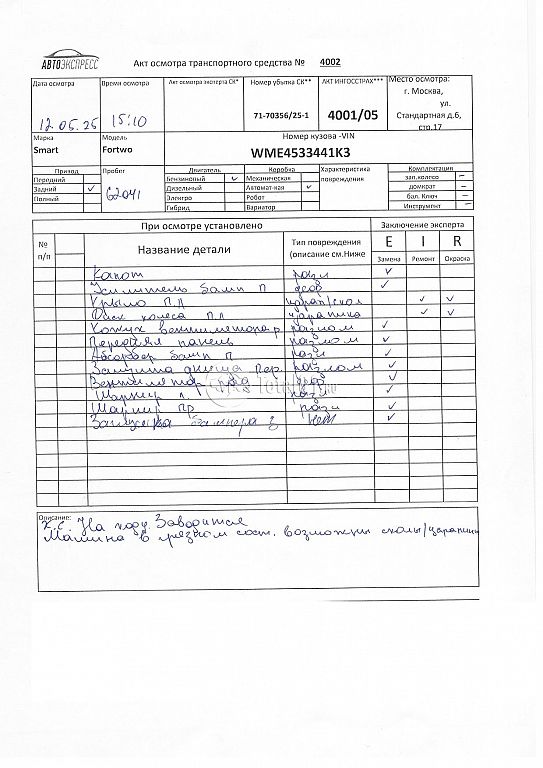 АВТОЭКСПРЕСС
Акт осмотра транспортного средства № 4002
Дата осмотра Время осмотра Акт осмотра эксперта СК* Номер убытка СК** АКТ ИНГОССТРАХ*** Место осмотра:
г. Москва,
ул.
Стандартная д.6,
стр.17
12.05.25 15:10 71-70356/25-1 4001/05
Марка Модель Номер кузова -VIN
Smart Fortwo WME4533441K3
Привод Пробег Двигатель Коробка Характеристика повреждения Комплектация
Передний Бензиновый ✓ Механическая зап.колесо –
Задний ✓ 62041 Дизельный Автомат-кая ✓ домкрат –
Полный Электро Робот бал. Ключ –
Гибрид Вариатор Инструмент –
При осмотре установлено Заключение эксперта
№ п/п Название детали Тип повреждения (описание см.Ниже E I R
Замена Ремонт Окраска
Капот разл ✓
Усилитель бамп П деф ✓
Крыло П.Л царап/скол ✓ ✓
Диск колеса П.Л царапина ✓ ✓
Кожух вентилятора разлом ✓
Передняя панель разлом ✓
Абсорбер бамп П разл ✓
Защита днища пер. разлом ✓
Вентилятор рад деф ✓
Шарнир л. разл ✓
Шарнир пр. разл ✓
Заглушка бампера з нет ✓
Описание:
К.С. На ходу. Заводится
Машина в грязном сост. возможны сколы/царапины